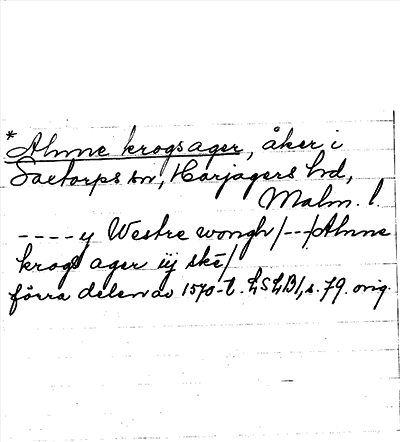 *Ahnne krogsager, åker i
Saxtorps sn, Harjagers hd,
Malm. l.
---- y Westre wongh/--/Ahnne
krogs ager iij skē/
förra delen av 1570-t. LSLB1, s. 79. orig.